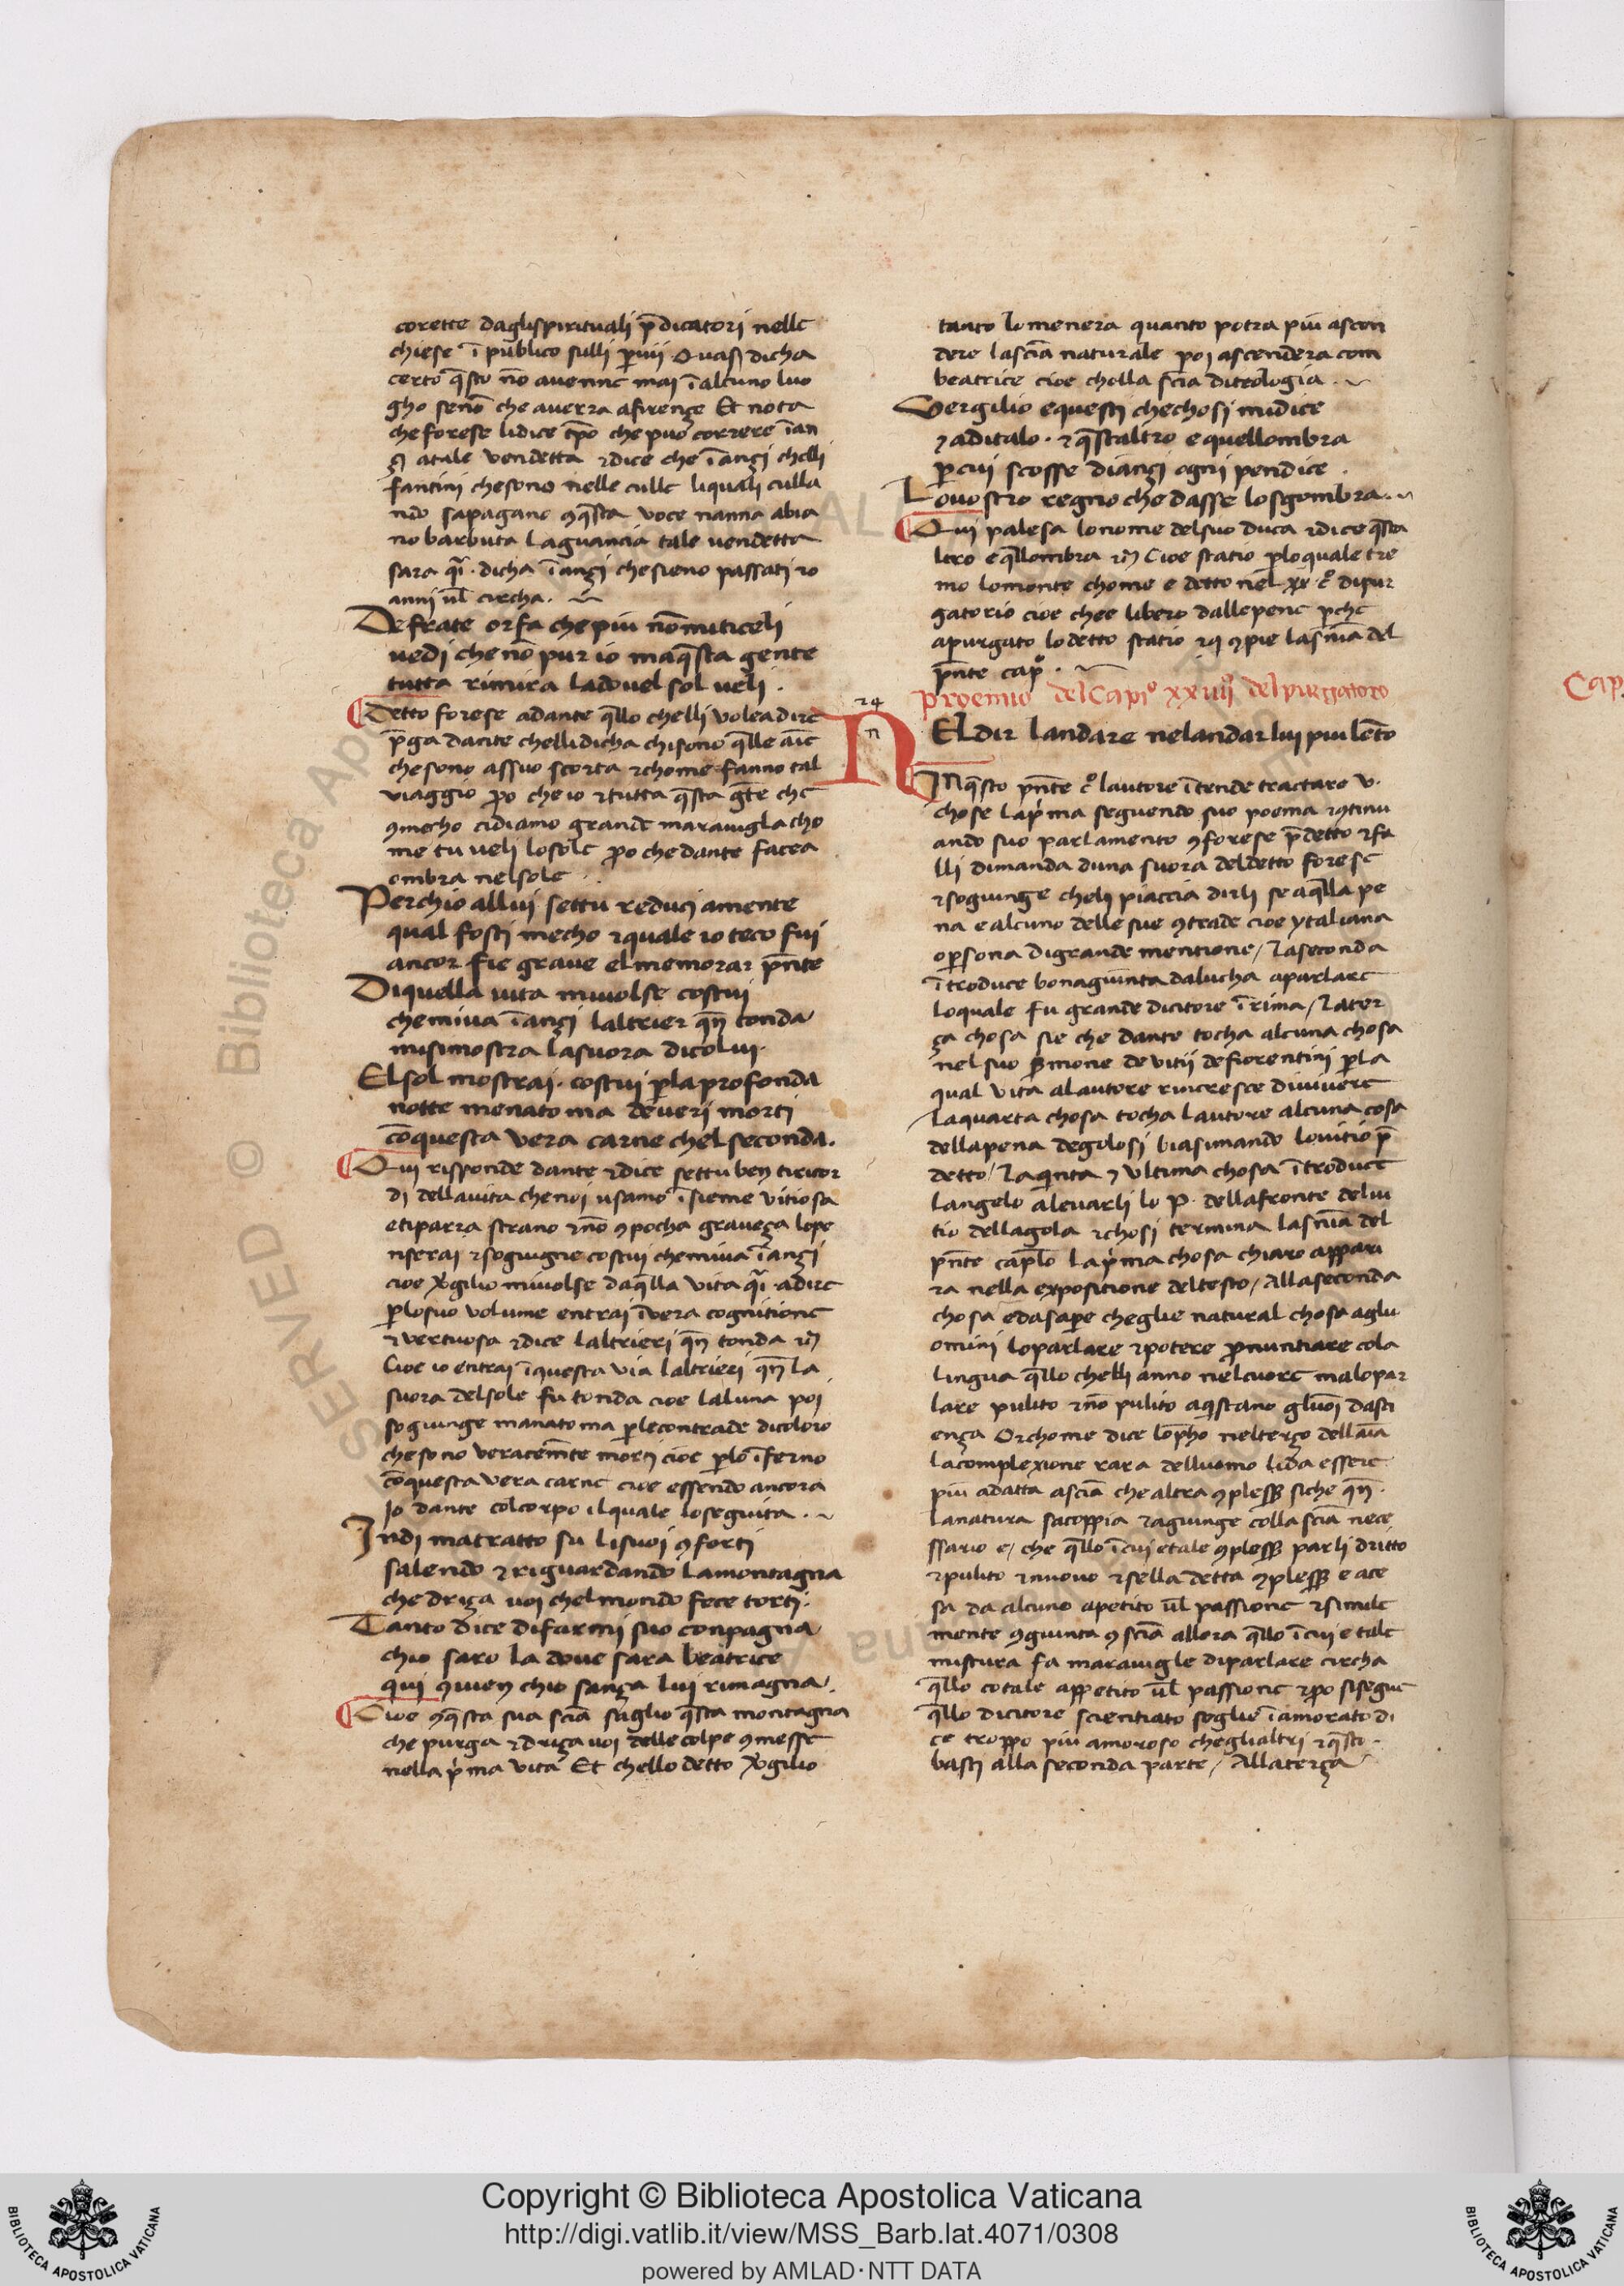 corette daglispirituali p̄dicatori nelle
chiese ī publico sulli p̱ viii Quasi dicha
certo q̄sto nō avenne mai ī alcuno luo
gho senō che averra afirenze Et nota
cheforese lidice tp̄o che puo correre īan
zi atale vendetta ⁊dice che īanzi chelli
fantini chesono nelle culle liquali culla
ndo sapagano ꝯq̄sta voce nanna abia
no barbuta laguancia tale vendetta
sara q̄i dicha īanzi chesieno passati 10
anni ūl circha.
Defrate orfa chepiu nōmiticeli
vedi chenō pur io maq̄sta gente
tutta rimira ladovel sol veli.
Detto forese adante q̄llo chelli volea dire
p̄ga dante chellidicha chisono q̄lle aīe
chesono assuo scorta ⁊chome fanno tal
viaggio p̱o che io ⁊tutta q̄sta gēte che
ꝯmecho cidiamo grande maraviglia cho
me tu veli losole p̱o che dante facea
ombra nelsole
Perchio allui settu reduci amente
qual fosti mecho ⁊quale io teco fui
ancor fie grave elmemorar p̄nte
Diquella vita mivolse costui
chemiva īanzi laltrier qn̄ tonda
misimostra lasuora dicolui.
El sol mostrai. costui p̱laprofonda
notte menato ma deveri morti
cō questa vera carne chel seconda.
Qui risponde dante ⁊dice settu ben tiricor
di dellavita chenoi usamo īsieme vitiosa
etiparra strano ⁊nō ꝯpocha graveza lope
nserai ⁊sogiugne costui chemiva īanzi
cioe v̄gilio mivolse daq̄lla vita q̄i adire
p̱losuo volume entrai īvera cognitione
⁊vertuosa ⁊dice laltrieri qn̄ tonda ⁊c̄
Cioe io entrai īquesta via laltrieri qn̄ la
suora delsole fu tonda cioe laluna poi
sogiunge manato ma p̱lecontrade dicoloro
chesono veracemēte morti cioe p̱lo īferno
cō questa vera carne cioe essendo ancora
Io dante colcorpo ilquale loseguita.
Indi matratto su lisuoi ꝯforti
salendo ⁊riguardando lamontagna
che driza voi chelmondo fece torti.
Tanto dice difarmi suo conpagna
chio saro la dove sara beatrice
qui ꝯvien chio sanza lui rimagna.
Cioe ꝯq̄sta sua sciā saglio q̄sta montagna
che purga ⁊driza voi delle colpe ꝯmesse
nella p̍ma vita Et chello detto v̄gilio
tanto lomenera quanto potra piu ascen
dere lasciā naturale poi ascendera com
beatrice cioe cholla sciā diteologia.
Vergilio equesti chechosi midice
⁊aditalo. ⁊q̄staltro e quellombra
p̱cui scosse dianzi ogni pendice.
Lovostro regno che dasse losgombra
Qui palesa lonome delsuo duca ⁊dice q̄sta
ltro e q̄llombra ⁊c̄ Cioe statio p̱loquale tre
mo lomonte chome e detto nel xx co dipur
gatorio cioe chee libero dallepene p̱che
apurgato lodetto statio ⁊q ꝯpie lasn̄ia del
p̄nte capo.
Proemio del Capio xxiiiio del purgatoro
24
n
NEl dir landare nelandar lui piu lēto
IN q̄sto p̄nte co lautore ītende tractare v.
chose Lap̍ma seguendo suo poema ⁊ꝯtinu
ando suo parlamento ꝯforese p̄detto ⁊fa
lli dimanda duna suora deldetto forese
⁊sogiunge cheli piaccia dirli se aq̄lla pe
na e alcuno delle sue ꝯtrade cioe ytaliana
op̱sona digrande mentione/ Laseconda
ītroduce bonagiunta dalucha aparlare
loquale fu grande dicitore īrima/ Later
za chosa sie che dante tocha alcuna chosa
nel suo sermone devitii defiorentini p̱la
qual vita alautore rincresce divivere
Laquarta chosa tocha lautore alcuna cosa
dellapena degolosi biasimando lovitio p̄
detto/ Laq̍nta ⁊ ultima chosa ītroduce
langelo alevarli lo P. dellafronte delvi
tio dellagola ⁊chosi termina lasn̄ia del
p̄nte cap̱lo Lap̍ma chosa chiaro appari
ra nella exposicione deltesto/ Allaseconda
chosa e dasape cheglie natural chosa agliu
omini loparlare ⁊potere pronuntiare cola
lingua q̄llo chelli anno nelcuore maloparlare pulito ⁊nō pulito aq̍stano gluoī dasci
enza Or chome dice lop̄ho nelterzo dellaīa
lacomplexione rara delluomo lida essere
piu adatta asciā che altra ꝯplessa siche qn̄
lanatura sacoppia ⁊agiunge colla sciā nece
ssario e/ che q̄llo īcui etale ꝯplessa parli dritto
⁊pulito ⁊nuovo ⁊sella detta ꝯplessa e acce
sa da alcuno apetito ūl passione ⁊simile
mente ꝯgiunta ꝯsciā allora q̄llo īcui e tale
mistura fa maravigle diparlare circha
q̄llo cotale appetito ūl passione ⁊p̱o sisegue
q̄llo dicitore scientiato soglie īamorato di
ce troppo piu amoroso cheglialtri ⁊q̄sto
basti alla seconda parte/ Allaterza
Cap
Copyright © Biblioteca Apostolica Vaticana
http://digi.vatlib.it/view/MSS_Barb.lat.4071/0308
powered by AMLAD·NTT DATA
BIBLIOTECA APOSTOLICA VATICANA
BIBLIOTECA APOSTOLICA VATICANA